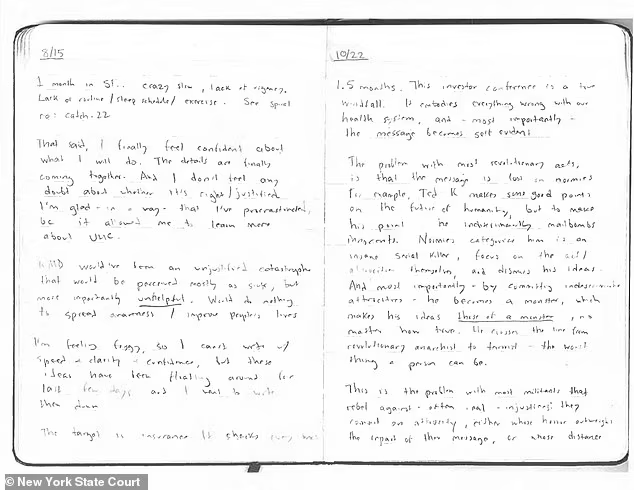 8/15
1 month in SF.. crazy slow, lack of urgency.
Lack of routine / sleep schedule / exercise. See spiel
re: catch-22
That said, I finally feel confident about
what I will do. The details are finally
coming together. And I don't feel any
doubt about whether it's right/justified.
I'm glad - in a way - that I've procrastinated,
bc it allowed me to learn more
about UHC.
would've been an unjustified catastrophe
that would be perceived mostly as sick, but
more importantly unhelpful. Would do nothing
to spread awareness / improve people's lives
I'm feeling foggy, so I can't write w/
speed + clarity + confidence, but these
ideas have been floating around for
last few days and I want to write
them down
The target is insurance. It checks every box
10/22
1.5 months. This investor conference is a true
windfall. It embodies everything wrong with our
health system, and - most importantly -
the message becomes self evident
The problem with most revolutionary acts,
is that the message is lost on normies
for example, Ted K makes some good points
on the future of humanity, but to make
his point he indiscriminately mailbombs
innocents. Normies categorize him as an
insane serial killer, focus on the act/
atrocities themselves, and dismiss his ideas.
And most importantly - by committing indiscriminate
atrocities - he becomes a monster, which
makes his ideas those of a monster, no
matter how true. He crosses the line from
revolutionary anarchist to terrorist - the worst
thing a person can be.
This is the problem with most militants that
rebel against - often real - injustices: they
commit an atrocity, either whose horror outweighs
the impact of their message, or whose distance
© New York State Court